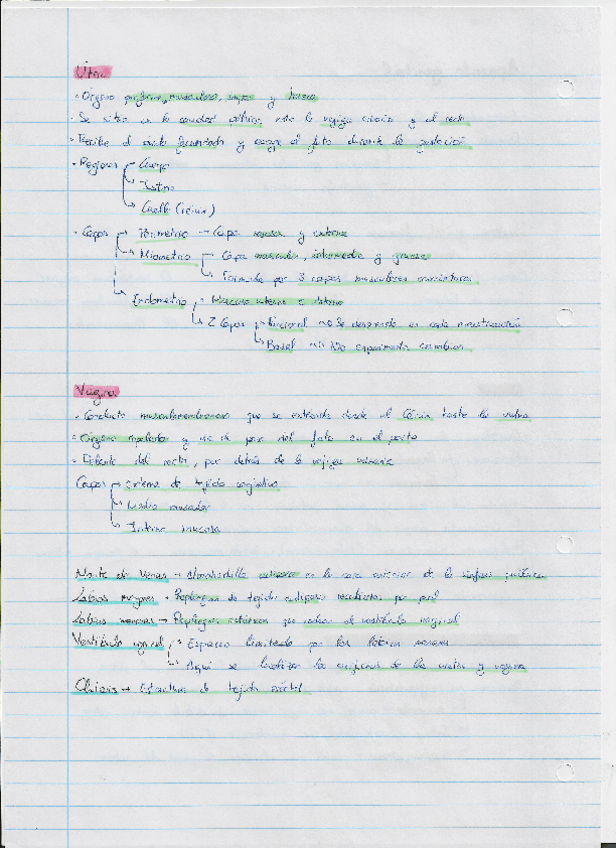 Útero
· Órgano piriforme, muscular, impar y hueco
· Se sitúa en la cavidad pélvica, entre la vejiga urinaria y el recto
· Recibe el óvulo fecundado y acoge al feto durante la gestación
· Regiones Cuerpo
Istmo
Cuello (cérvix)
· Capas Perimetrio → Capa serosa y externa
Miometrio Capa muscular, intermedia y gruesa
Formada por 3 capas musculares
Endometrio Mucosa interna
2 Capas Funcional → Se desprende en cada menstruación
Basal → No experimenta cambios
Vagina
· Conducto musculomembranoso que se extiende desde el Cérvix hasta la vulva
· Órgano copulador y vía de paso del feto en el parto
· Delante del recto, por detrás de la vejiga urinaria
Capas externa de tejido conjuntivo
Media muscular
Interna mucosa
Monte de Venus → Almohadilla en la cara anterior de la sínfisis púbica
Labios mayores → Repliegues de tejido adiposo recubiertos por piel
Labios menores → Repliegues cutáneos que rodean al vestíbulo vaginal
Vestíbulo vaginal Espacio limitado por los labios menores
Aquí se localizan los orificios de la uretra y vagina
Clítoris → Estructura de tejido eréctil